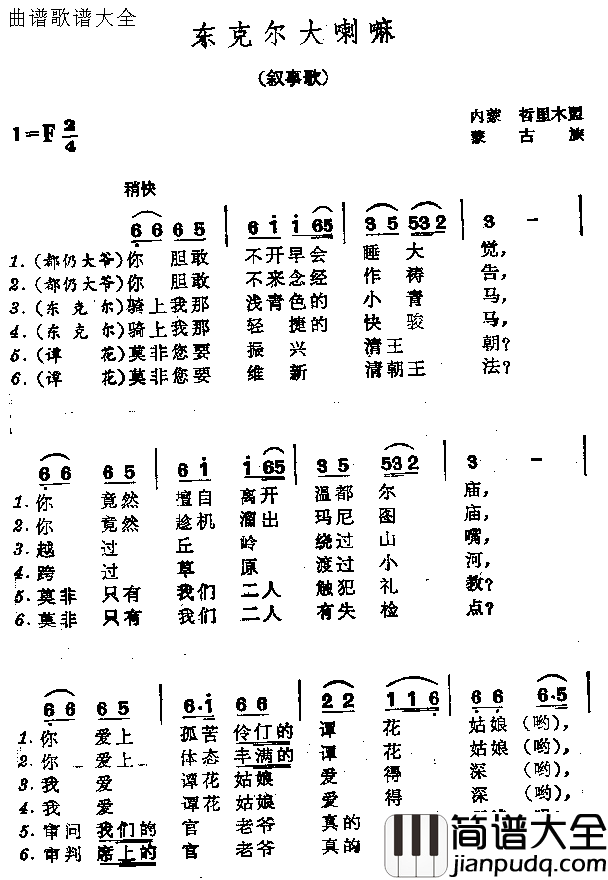 曲谱歌谱大全
东克尔大喇嘛
(叙事歌)
内蒙 哲里木盟
蒙古族
1=F 2/4
稍快
6 6 6 5 | 6 1 1 (65) | 3 5 532 | 3 – |
1.(都仍大爷)你 胆敢 不开早会 睡大觉,
2.(都仍大爷)你 胆敢 不来念经 作祷告,
3.(东克尔)骑上我那 浅青色的 小青马,
4.(东克尔)骑上我那 轻捷的 快骏马,
5.(谭花)莫非您要 振兴 清王朝?
6.(谭花)莫非您要 维新 清朝王法?
6 6 6 5 | 6 1 1 (65) | 3 5 532 | 3 – |
1.你 竟然 擅自离开 温都尔庙,
2.你 竟然 趁机溜出 玛尼图庙,
3.越过 丘岭 绕过山嘴,
4.跨过 草原 渡过小河,
5.莫非只有 我们二人 触犯礼教?
6.莫非只有 我们二人 有失检点?
6 6 6 5 | 6·1 6 6 | 2 2 1 1 6 | 6 6 6·5 |
1.你 爱上 孤苦伶仃的 谭花 姑娘(哟),
2.你 爱上 体态丰满的 谭花 姑娘(哟),
3.我 爱 谭花姑娘 爱得 深(哟),
4.我 爱 谭花姑娘 爱得 深(哟),
5.审问我们的 官老爷 真的
6.审判席上的 官老爷 真的
简谱大全
jianpudq.com